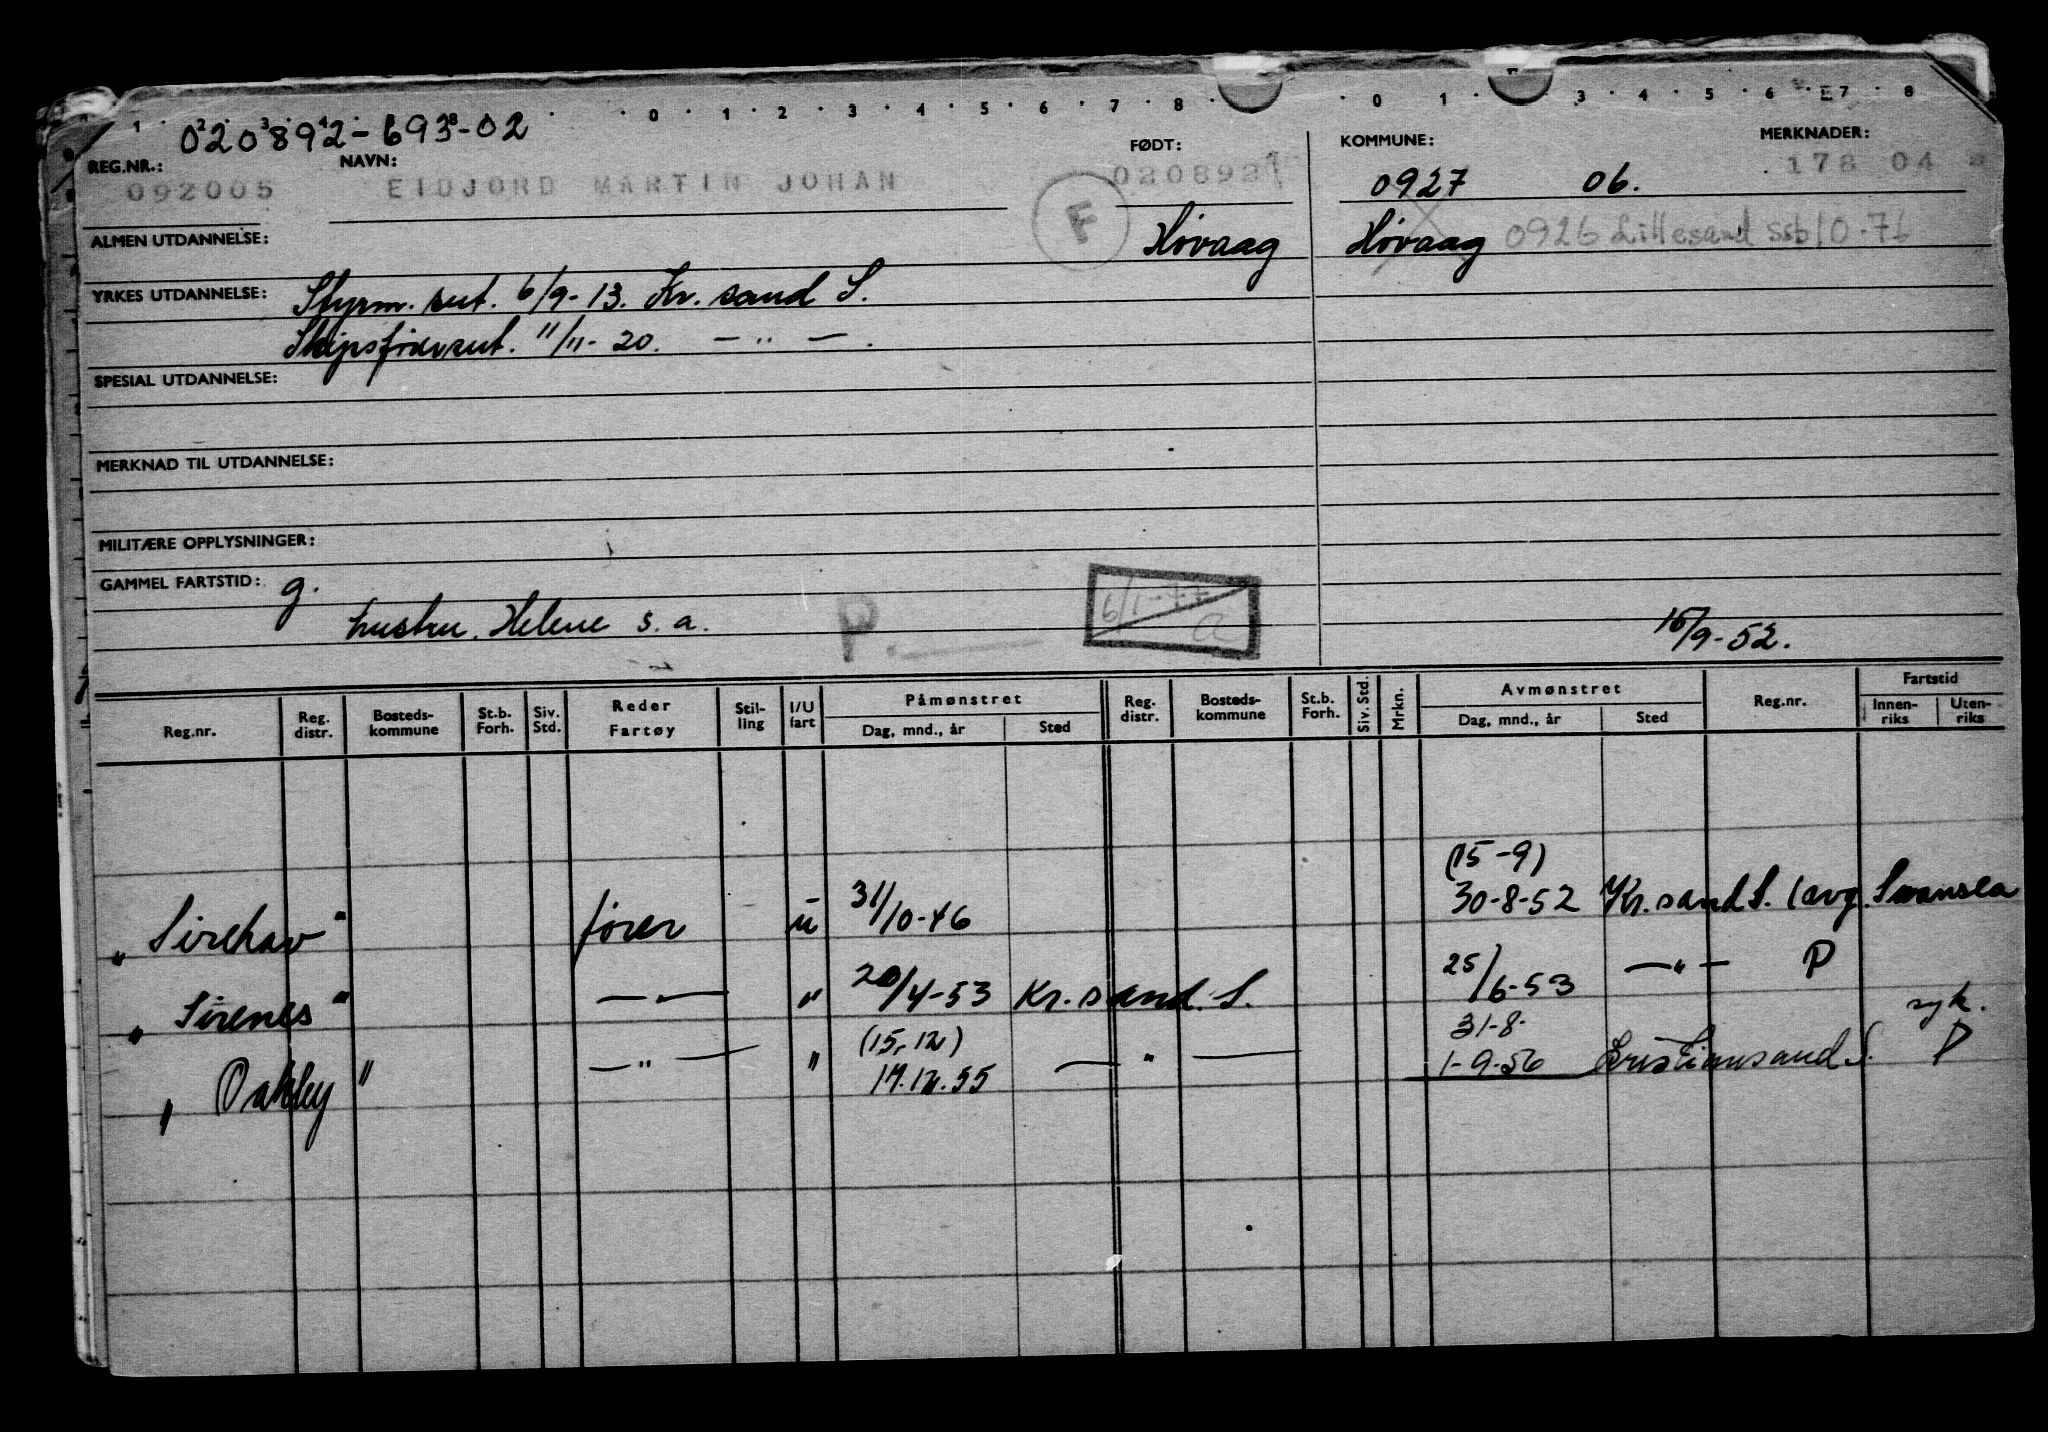 1 2 3 4 8 0 1 2 3 4 5 6 7 8 0 1 3 4 5 6 7 8
020892-693-02
REG.NR.: NAVN: FØDT: KOMMUNE: MERKNADER:
092005 EIDJORD MARTIN JOHAN 020892 0927 06. 178 04
F
ALMEN UTDANNELSE: Høvaag Høvaag 0926 Lillesand ssb 10.76
YRKES UTDANNELSE: Styrm. sert. 6/9-13. Kr. sand S.
Skipsførersert. 11/11-20. — " — .
SPESIAL UTDANNELSE:
MERKNAD TIL UTDANNELSE:
MILITÆRE OPPLYSNINGER:
GAMMEL FARTSTID: g.
hustru. Helene s. a. P. 6/1-77 a 15/9-52.
Reg.nr. Reg. distr. Bosteds-kommune St.b. Forh. Siv. Std. Reder Fartøy Stil-ling I/U fart Påmønstret Dag, mnd., år Sted Reg. distr. Bosteds-kommune St.b. Forh. Siv. Std. Mrkn. Avmønstret Dag, mnd., år Sted Reg.nr. Fartstid Innen-riks Uten-riks
(15-9)
„Sirehav" fører u 31/10-46 30-8-52 Kr. sand S. (avg. Swansea
„Sirenes" — " — " 20/4-53 Kr. sand. S. 25/6-53 — " — P
(15.12) 31-8. syk.
„Oakley" — " — " 17.12.55 — " — 1-9-56 Kristiansand S. P